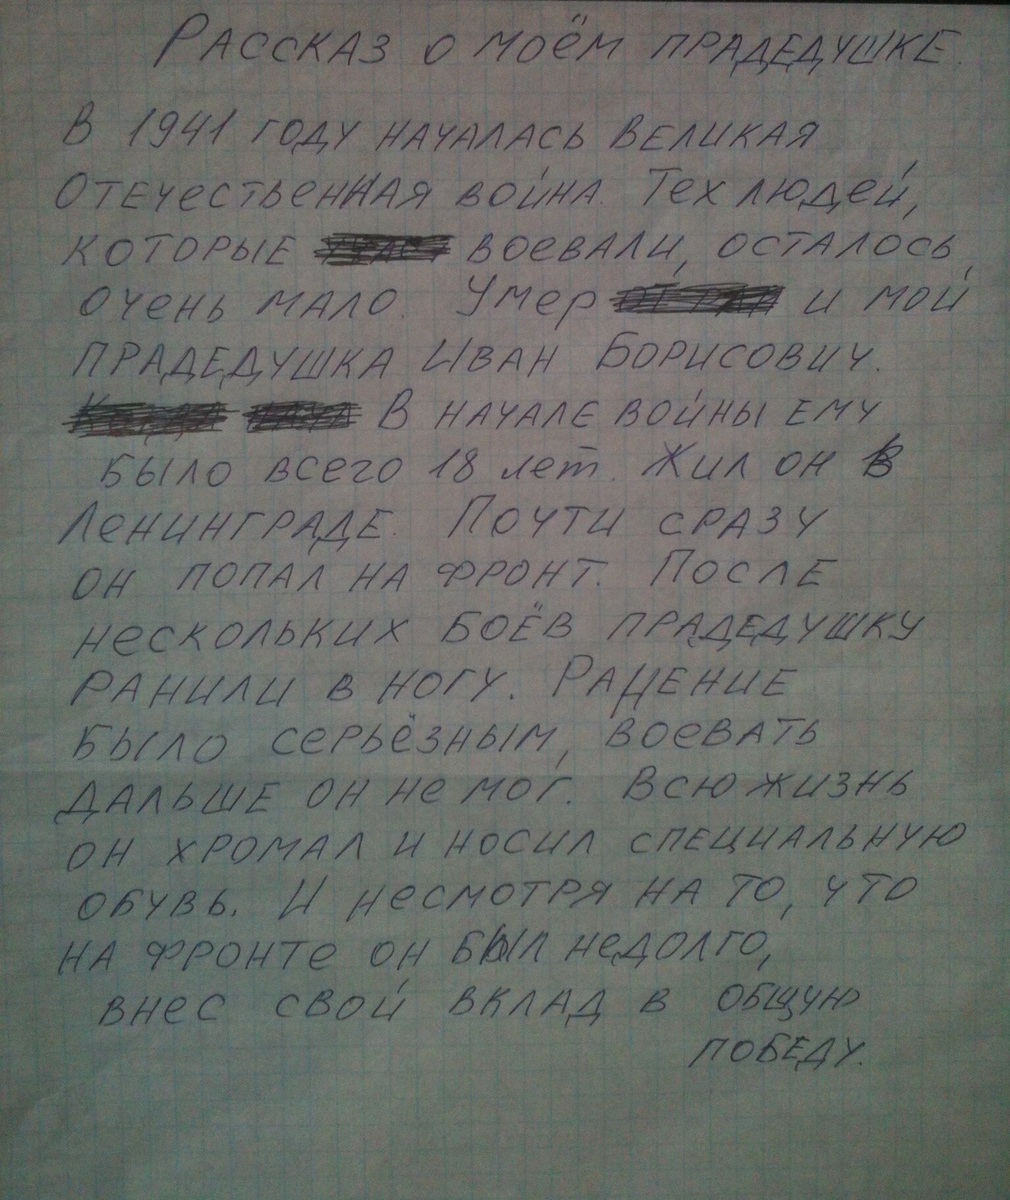 Рассказ о моём прадедушке.
В 1941 году началась Великая
Отечественная война. Тех людей,
которые воевали, осталось
очень мало. Умер и мой
прадедушка Иван Борисович.
В начале войны ему
было всего 18 лет. Жил он в
Ленинграде. Почти сразу
он попал на фронт. После
нескольких боёв прадедушку
ранили в ногу. Ранение
было серьёзным, воевать
дальше он не мог. Всю жизнь
он хромал и носил специальную
обувь. И несмотря на то, что
на фронте он был недолго,
внес свой вклад в общую
победу.